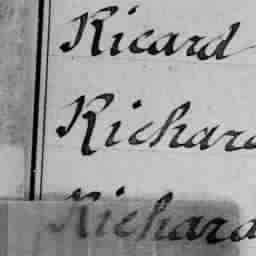 Ricard
Richard
Richard